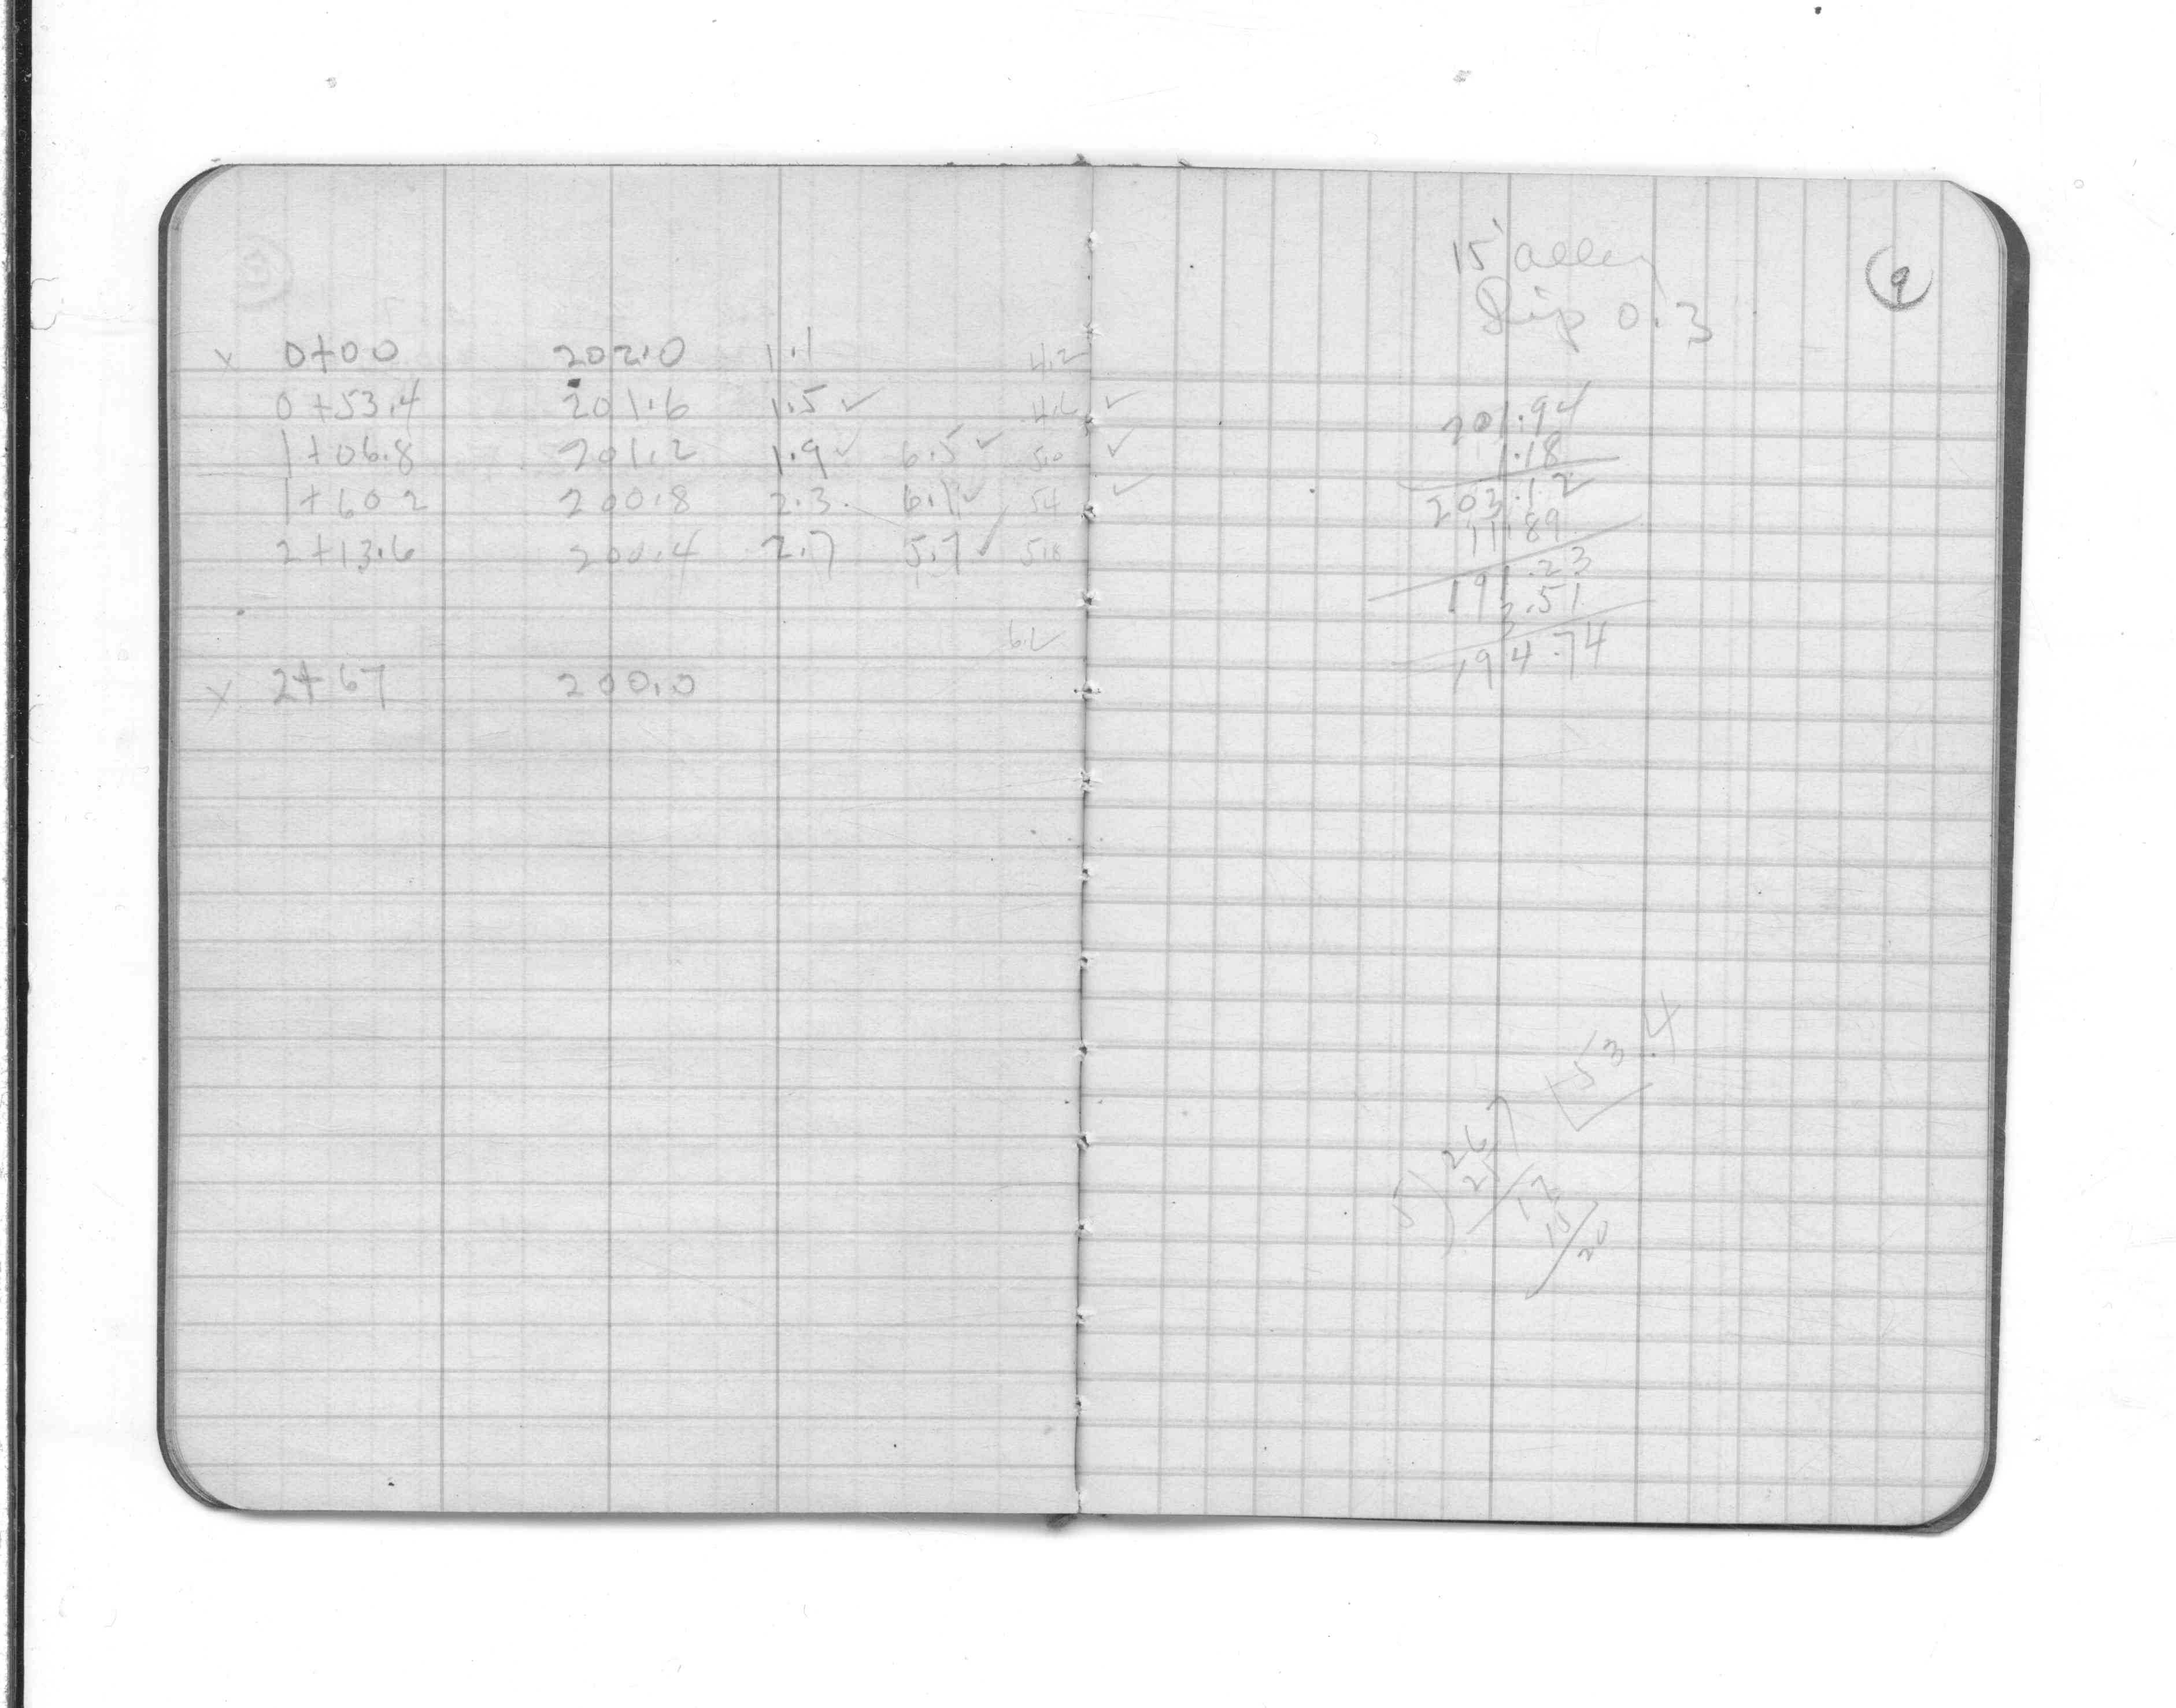 x 0+00 202.0 1.1 4.2
0+53.4 201.6 1.5 ✓ 4.6 ✓
1+06.8 201.2 1.9 ✓ 6.5 ✓ 5.0 ✓
1+60.2 200.8 2.3 6.1 ✓ 5.4 ✓
2+13.6 200.4 2.7 5.7 ✓ 5.8
6.2
x 2+67 200.0
9
15' alley
Dip 0.3
201.94
1.18
203.12
11.89
191.23
3.51
194.74
53.4
5) 267
25
17
15
20